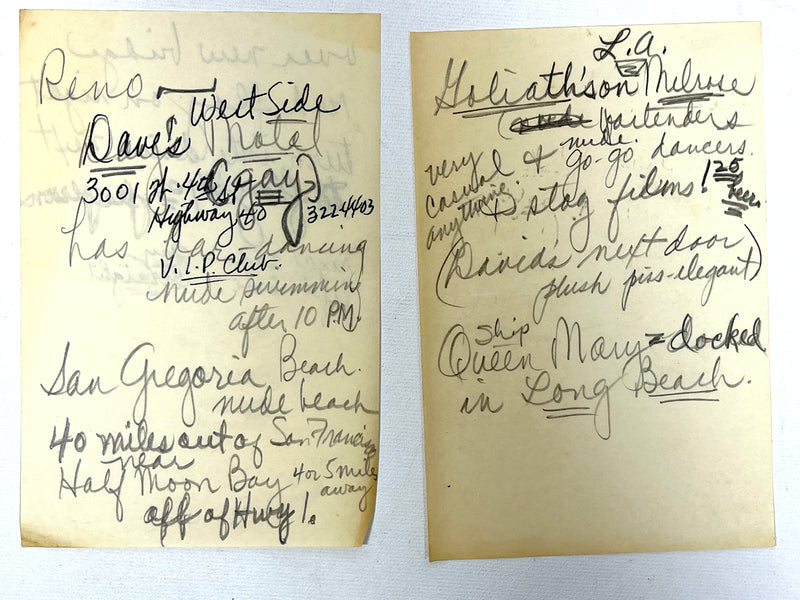 Reno
West Side
Dave's Motel
3001 W. 4th St (gay)
Highway 40 3224403
has bar-dancing
V.I.P. Club.
nude swimming
after 10 P.M.
San Gregoria Beach.
nude beach
40 miles out of San Francisco
near
Half Moon Bay 4 or 5 miles
away
off of Hwy 1.
L.A.
Goliath's on Melrose
bartenders
very & nude go-go dancers.
casual
anything.
stag films! 25
beer
(David's next door
plush piss-elegant)
Ship
Queen Mary = docked
in Long Beach.